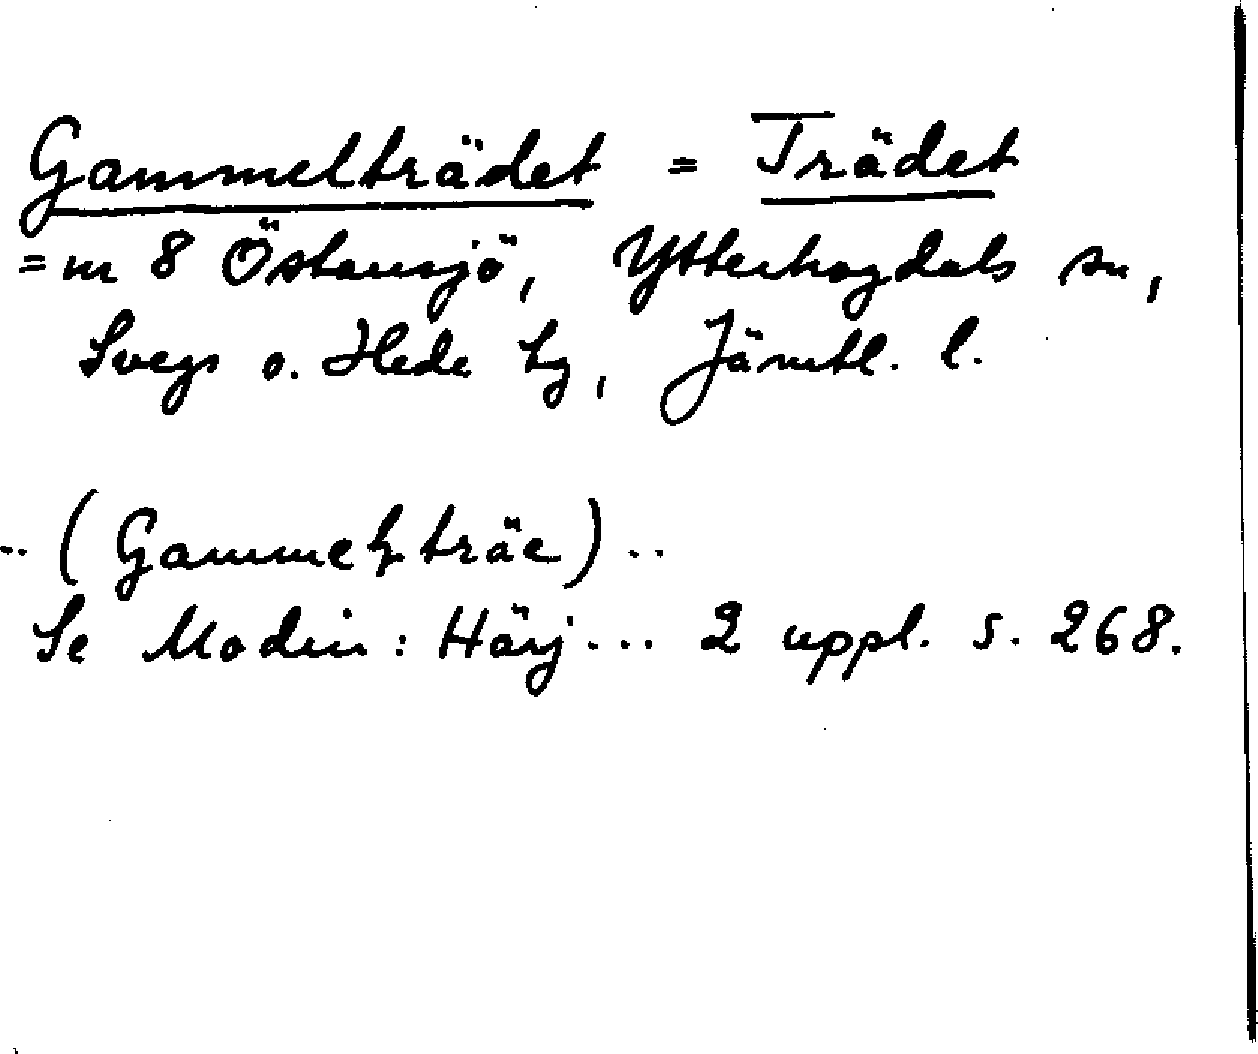 Gammelträdet = Trädet
= nr 8 Östansjö, Ytterhogdals sn,
Svegs o. Hede tg, Jämtl. l.
.. (Gammeltträe) ..
Se Modin: Härj... 2 uppl. s. 268.